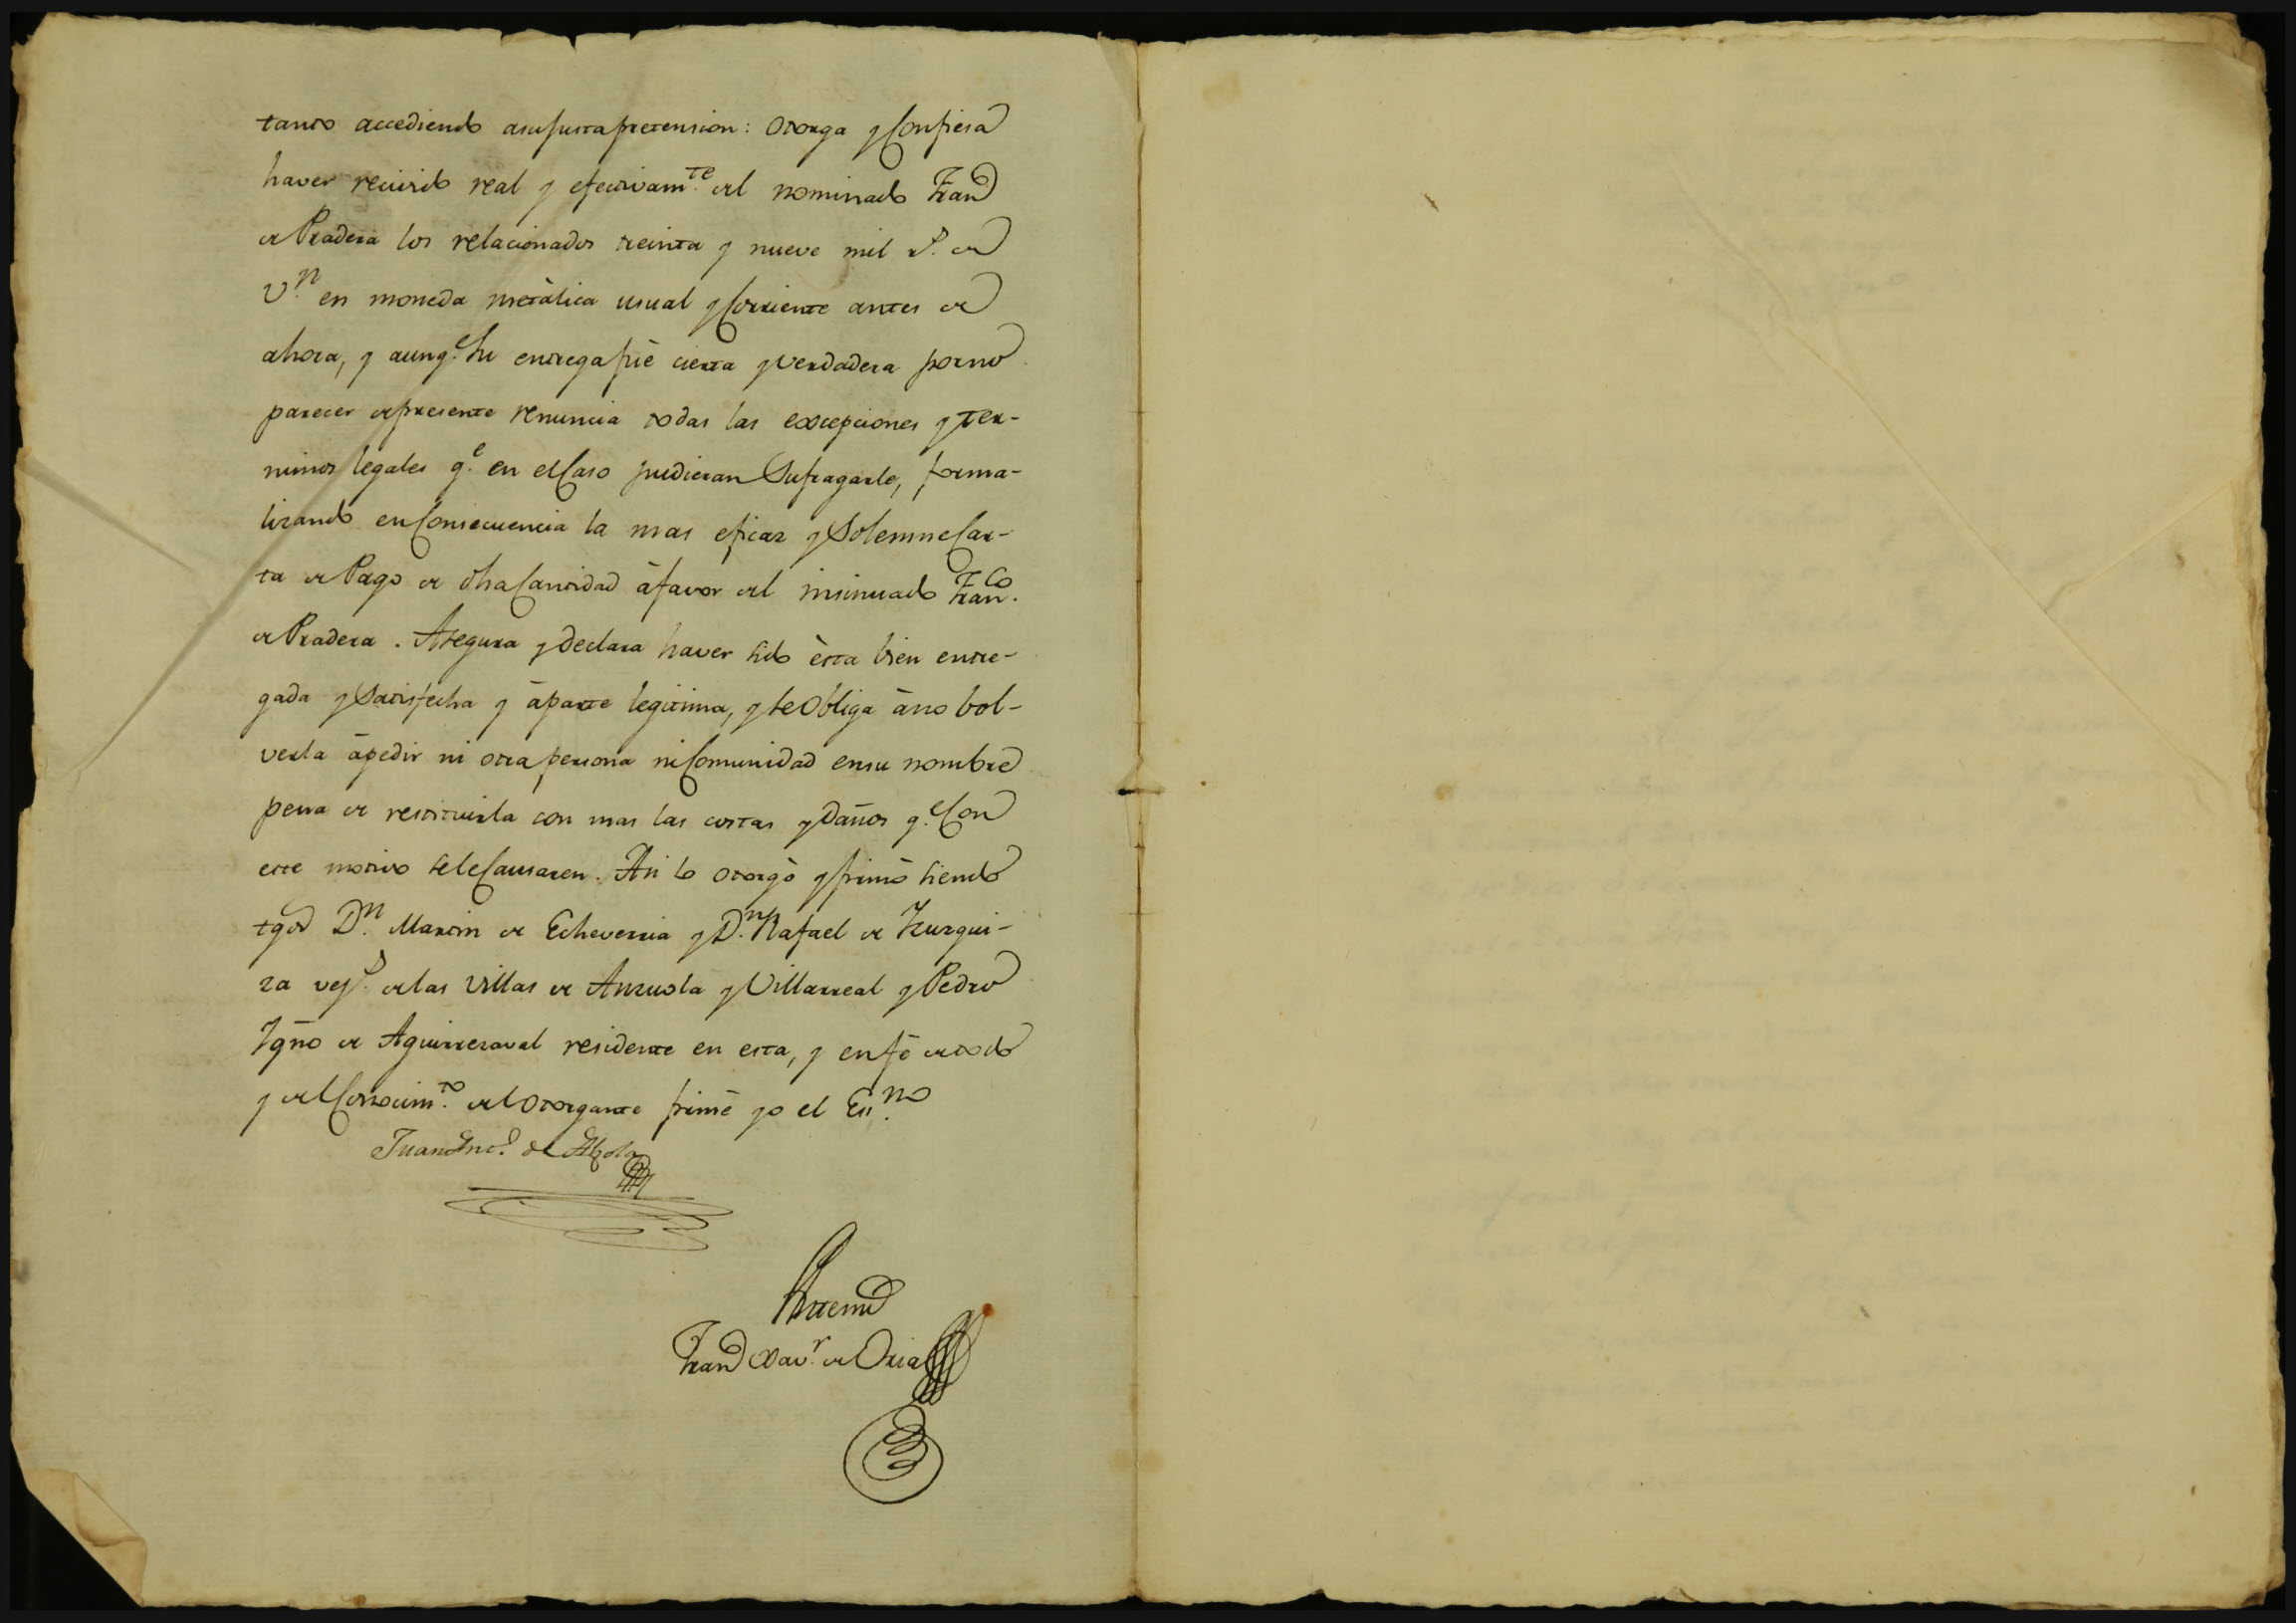 tanto accediendo asu justa pretension: otorga y Confiesa
haver recivido real y efectivam.te del nominado Fran.co
de Pradera los relacionados treinta y nueve mil r.s de
V.n en moneda metàlica usual y Corriente antes de
ahora, y aunq.e su entrega fuè cierta y verdadera por no
parecer de presente renuncia todas las excepciones y ter-
minos legales q.e en el Caso pudieran Sufragarle, forma-
lizando en Consecuencia la mas eficaz y Solemne Car-
ta de Pago de dha Cantidad à favor del insinuado Fran.co
de Pradera. Asegura y declara haver sido èsta bien entre-
gada y Satisfecha y à parte legitima, y se obliga à no bol-
verla à pedir ni otra persona ni Comunidad en su nombre
pena de restituirla con mas las costas y daños q.e Con
este motivo se le Causaren. Asi lo otorgò y firmò siendo
tgos D.n Martin de Echeverria y D.n Rafael de Yzurqui-
za vez.s de las Villas de Anzuola y Villarreal y Pedro
Ygño de Aguirresaval residente en esta, y en fè de todo
y del Conocim.to del otorgante firmè yo el Es.no
Juan Anto. de
Ante mi
Fran.co Xav.r de Oria